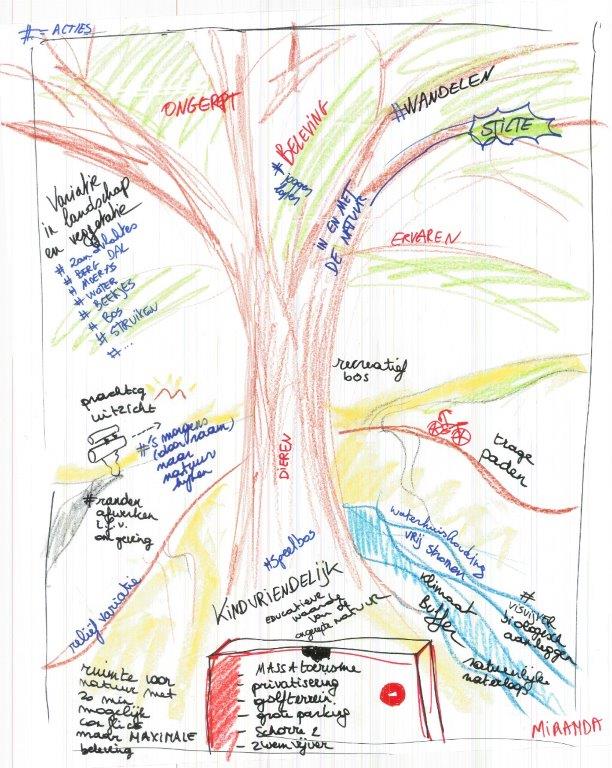 # = ACTIES
ONGEREPT
BELEVING
# joggen
lopen
#WANDELEN
STILTE
IN EN MET
DE NATUUR
ERVAREN
Variatie
in landschap
en vegetatie
# BERG DAL
# MOERAS
# WATER
# BEEKJES
# BOS
# STRUIKEN
# ...
recreatief
bos
prachtig
uitzicht
# 's morgens
(door raam)
naar
natuur
kijken
DIEREN
trage
paden
# randen
afwerken
i.f.v.
omgeving
waterhuishouding
vrij stromen
klimaat
buffer
#
visvijver
biologische
aanleggen
natuurlijke
waterloop
reliëf variatie
#Speelbos
KINDVRIENDELIJK
EDUCATIEVE
waarde
van de
ongerepte natuur
ruimte voor
natuur met
zo min
mogelijk
conflict
maar MAXIMALE
beleving
- MASSAtoerisme
- privatisering
- golfterrein
- grote parking
- Schorre 2
- zwemvijver
MIRANDA